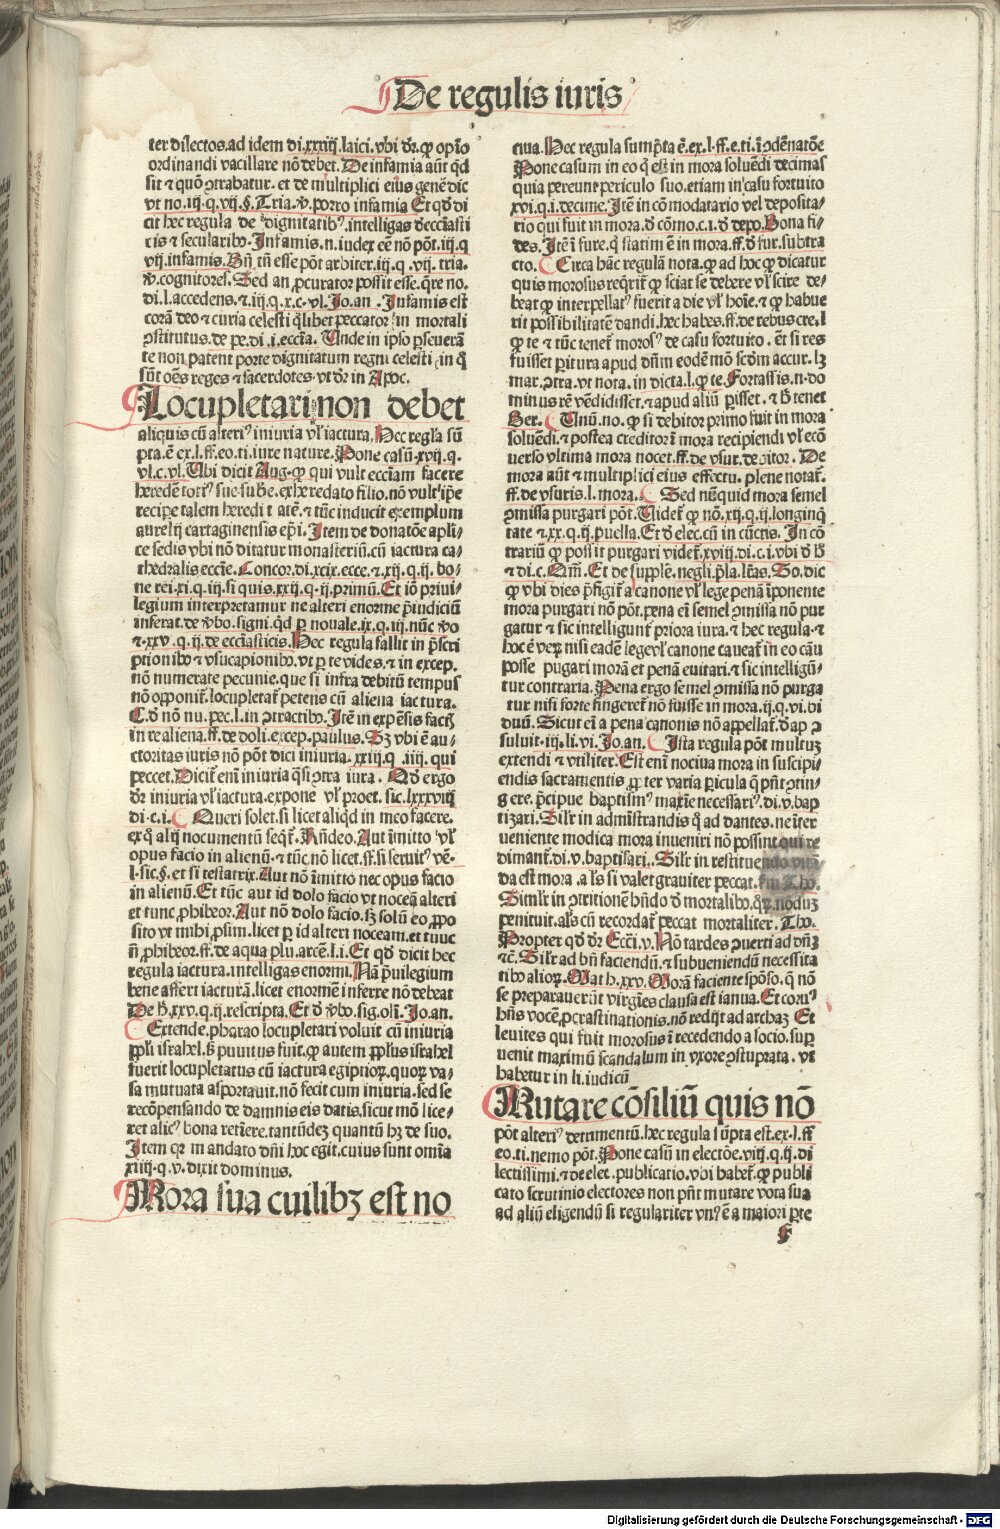 De regulis iuris
ter dilectos.ad idem di.xxiiij.laici.vbi dr̄.ꝙ opīo
ordinandi vacillare nō debet. De infamia aūt qd̄
sit ⁊ quō ꝯtrabatur. et de multiplici eius genē dic
vt no.iij.q.vij.§.Tria.v̄.porro infamia Et qd̄ di
cit hec regula de dignitatibꝰ.intelligas ecc̄iasti
cis ⁊ secularibꝰ. Infamis.n.iudex eē nō pōt.iij.q
vij.infamis. Bn̄ tn̄ esse pōt arbiter.iij.q.vij.tria.
v̄.cognitores. Sed an ꝓcurator possit esse.qre no.
di.l.accedens.⁊.iij.q.x.c.vl.Jo.an. Infamis est
corā deo ⁊ curia celesti qlibet peccator in mortali
ꝯstitutus.de pe.di.i.ecc̄ia. Unde in ipso ꝑseuerā
te non patent porte dignitatum regni celesti in q̄
sūt oēs reges ⁊ sacerdotes.vt dr̄ in Apoc.
Locupletari non debet
aliquis cū alteriꝰ iniuria vl̓ iactura. Hec regl̓a sū
pta.ē ex.l.ff.eo.ti.iure nature. Pone casū.xvij.q.
vl.c.vl. Ubi dicit Aug.ꝙ qui vult ecc̄iam facere
heredē totiꝰ sue sub̄e.exheredato filio.nō vult ip̄e
recipe talem heredi tatē.⁊ tūc inducit exemplum
aurelij cartaginensis ep̄i. Item de donatōe apl̓i-
ce sedis vbi nō ditatur monasteriū.cū iactura ca-
thedralis ecc̄ie. Concor.di.xcix.ecce.⁊.xij.q.ij.bo-
ne rei.xi.q.iij.si quis.xxij.q.ij.primū. Et iō priui-
legium interpretamur ne alteri enorme p̄iudiciū
inferat.de v̄bo.signi.qd̄ ꝑ nouale.ix.q.iij.nūc v̄o
⁊.xxv.q.ij.de ecc̄iasticis. Hec regula fallit in p̄scri
ptionibꝰ ⁊ vsucapionibꝰ.vt ꝑ te vides.⁊ in excep.
nō numerate pecunie.que si infra debitū tempus
nō opponit̄.locupletat̄ petens cū aliena iactura.
C.d̄ nō nu.pec.l.in ꝯtractibꝰ. Itē in expēsis factꝭ
in re aliena.ff.de doli.excep.paulus. Sꝫ vbi ē au-
ctoritas iuris nō pōt dici iniuria.xxiij.q.iiij.qui
peccet. Dicit̄ eni iniuria qsi ꝯtra iura. Qd̄ ergo
dr̄ iniuria vl̓ iactura.expone vl̓ pro et.sic.lxxxviij
di.c.i. Queri solet.si licet aliqd in meo facere.
ex q̄ alij nocumentū seqt̄. Rn̄deo. Aut īmitto vl̓
opus facio in alienū.⁊ tūc nō licet.ff.si seruitꝰ vē.
l.sic.§.et si testatrix. Aut nō īmitto nec opus facio
in alienū. Et tūc aut id dolo facio vt noceā alteri
et tunc ꝓhibeor. Aut nō dolo facio.sꝫ solū eo ꝓpo
sito vt mihi ꝓsim.licet ꝑ id alteri noceam.et tunc
n̄ ꝓhibeor.ff.de aqua plu.arcē.l.i. Et qd̄ dicit hec
regula iactura.intelligas enormi. Nā p̄uilegium
bene affert iacturā.licet enormē inferre nō debeat
De h̄.xxv.q.ij.rescripta. Et d̄ v̄bo.sig.oli.Jo.an.
Extende.pharao locupletari voluit cū iniuria
ppl̓i israhel.sꝫ punitus fuit.ꝙ autem ppl̓us israhel
fuerit locupletatus cū iactura egiptioꝝ.quoꝝ va-
sa mutuata asportauit.nō fecit cum iniuria.sed se
recōpensando de damnis eis datis.sicut mō lice-
ret alicꝰ bona retinere.tantūdeꝫ quantū hꝫ de suo.
Item qꝛ mandato dn̄i hoc egit.cuius sunt omīa
xiiij.q.v.dixit dominus.
Mora sua cuilibꝫ est no
ciua. Hec regula sumpta ē.ex.l.ff.e.ti.ī ꝯdēnatōe
Pone casum in eo q̄ est in mora soluēdi decimas
quia pereunt periculo suo.etiam in casu fortuito
xvi.q.i.decime. Itē in cōmodatario vel deposita-
rio qui fuit in mora.d̄ cōmo.c.i.d̄ depo. Bona fi-
des. Itē ī fure.q̄ statim ē in mora.ff.d̄ fur.subtra
cto. Circa hāc regulā nota.ꝙ ad hoc ꝙ dicatur
quis morosus reqrit̄ ꝙ sciat se debere vl̓ scire de-
beat ꝙ interpellatꝰ fuerit a die vl̓ hoīe.⁊ ꝙ habue
rit possibilitatē dandi.hec habes.ff.de rebus cre.l
ꝙ te ⁊ tūc tenet̄ morosꝰ de casu fortuito.ēt si res
fuisset ꝑitura apud dn̄m eodē mō scd̄m accur.lꝫ
mar.ꝯtra.vt nota.in dicta.l.ꝙ te. Fortassis.n.do
minus rē vēdidisset.⁊ apud aliū ꝑisset.⁊ h̄ tenet
Ber. Unū.no.ꝙ si debitor primo fuit in mora
soluēdi.⁊ postea creditor ē mora recipiendi vl̓ ecō
uerso vltima mora nocet.ff.de vsur.debitor. De
mora aūt ⁊ multiplici eius effectu.plene notat̄.
ff.de vsuris.l.mora. Sed nūquid mora semel
ꝯmissa purgari pōt. Videt̄ ꝙ nō.xij.q.ij.longinq
tate ⁊.xx.q.ij.puella. Et d̄ elec.cū in cūctis. In cō
trariū ꝙ possit purgari videt̄.xviij.di.c.i.vbi d̄ h̄
⁊ di.c.Qm̄. Et de supplē.negli.p̄la.l̓ras. So.dic
ꝙ vbi dies p̄figit̄ a canone vl̓ lege penā īponente
mora purgari nō pōt.pena eī semel ꝯmissa nō pur
gatur ⁊ sic intelligunt̄ priora iura.⁊ hec regula.⁊
hoc ē veꝝ nisi eadē lege vl̓ canone caueat̄ in eo cāu
posse pugari morā et penā euitari.⁊ sic intelligū-
tur contraria. Pena ergo semel ꝯmissa nō purga
tur nisi forte fingeret̄ nō fuisse in mora.ij.q.vi.bi
duū. Sicut eī a pena canonis nō appellat̄.d̄ ap ꝯ
suluit.iij.li.vi.Jo.an. Ista regula pōt multuꝫ
extendi ⁊ vtiliter. Est eni nociua mora in suscipi-
endis sacramentis ꝓpter varia ꝑicula q̄ pn̄t ꝯtin-
gere.p̄cipue baptismꝰ maxīe necessariꝰ.di.v.bap
tizari. Sil̓r in admīstrandis q̄ ad dantes.ne iter
ueniente modica mora inueniri nō possint qui re
dimant̄.di.v.baptisari. Sil̓r in restituendo vitā
da est mora.al̓s si valet grauiter peccat.ꝑm Tho.
Simil̓r in ꝯtritionē hn̄do d̄ mortalibꝰ.qꝛ.noduꝫ
penituit.al̓s cū recordat̄ peccat mortaliter. Tho.
Propter qd̄ dr̄ Ecc̄i.v. Nō tardes ꝯuerti ad dn̄ꝫ
⁊c̄. Sil̓r ad bn̄ faciendū.⁊ subueniendū necessita
tibꝰ alioꝝ. Math.xxv. Morā faciente spōso.q̄ nō
se preparauerūt virgīes clausa est ianua. Et coruꝰ
hn̄s vocē.ꝓcrastinationis.nō redijt ad archaꝫ Et
leuites qui fuit morosus ī recedendo a socio.suꝑ
uenit maximū scandalum in vxore ꝯstuprata.vt
habetur in li.iudicū
Mutare cōsiliū quis nō
pōt alteriꝰ detrimentū.hec regula sūpta est.ex.l.ff
eo.ti.nemo pōt. Pone casū in electōe.viij.q.ij.di
lectissimi.⁊ de elec.publicatio.vbi habet̄.ꝙ publi
cato scrutinio electores non pn̄t mutare vota sua
ad aliū eligendū si regulariter vnꝰ ē a maiori ꝑte
F
Digitalisierung gefördert durch die Deutsche Forschungsgemeinschaft - DFG